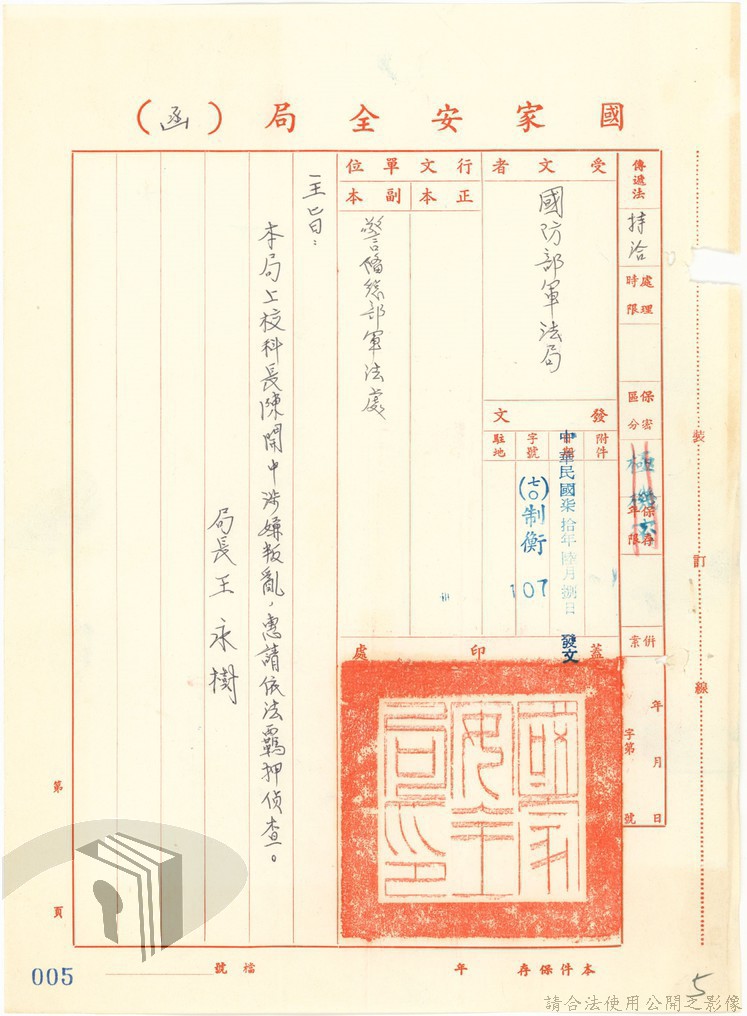 國家安全局（函）
傳遞法
持洽
處理時限
保密區分
極機密
保存年限
併案
年 月 日
字第 號
受文者
國防部軍法局
行文單位
正本
副本
警備總部軍法處
發文
附件
日期
中華民國柒拾年陸月捌日 發文
字號
(七〇)制衡 107
駐地
蓋印處
國家安全局印
主旨：
本局上校科長陳開中涉嫌叛亂，惠請依法羈押偵查。
局長王永樹
裝訂線
第 頁
本件保存 年
檔號
005
5
請合法使用公開之影像